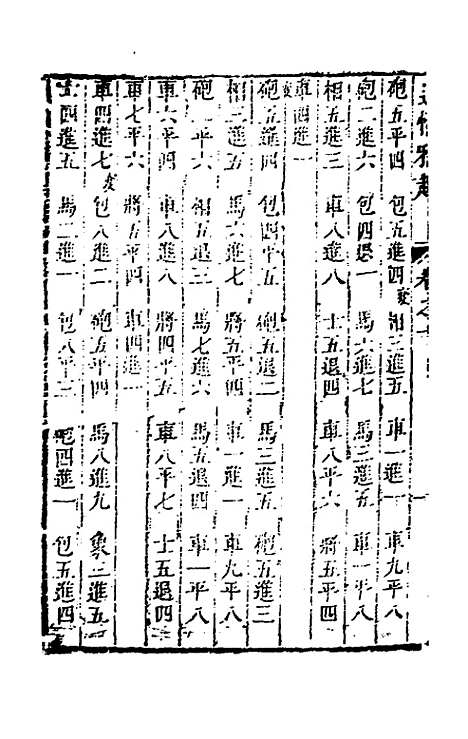 適情雅趣 卷之
砲五平四 包五進四 変 相三進五 車一進一 車九平八
砲二進六 包四退一 馬六進七 馬三進五 車一平八
相五進三 車八進八 士五退四 車八平六 將五平四
車四進一
砲五進四 包四平五 砲五退二 馬三進五 砲五進三
相三進五 馬六進七 將五平四 車一進一 車九平八
砲 平六 相五退三 馬七進六 馬五退四 車一平八
車六平四 車八進八 將四平五 車八平七 士五退四
車七平六 將五平四 車四進一
車四進七 変 包八進二 砲五平四 馬八進九 象三進五
士四進五 馬二進一 包八平三 包四進一 包五進四